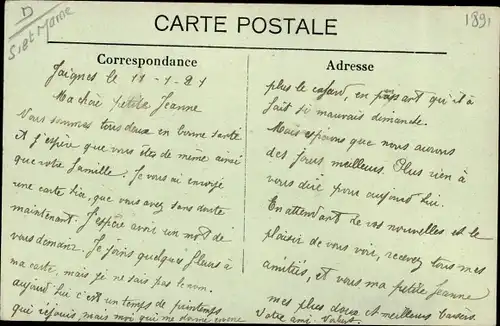 D
S et Marne
1891
CARTE POSTALE
Correspondance
Adresse
Jaignes le 11-1-21
Ma chère petite Jeanne
Vous sommes tous deux en bonne santé
et j'espère que vous êtes de même ainsi
que votre famille. Je vous ai envoyé
une carte hier, que vous avez sans doute
maintenant. J'espère avoir un mot de
vous demain. Je joins quelques fleurs à
ma carte, mais je ne sais pas le nom.
aujourd'hui c'est un temps de printemps
qui réjouis, mais moi qui me donne encore
plus le cafard, en pensant qu'il a
fait si mauvais dimanche.
Mais espérons que nous aurons
des jours meilleurs. Plus rien à
vous dire pour aujourd'hui.
En attendant de vos nouvelles et le
plaisir de vous voir, recevez tous mes
amitiés, et vous ma petite Jeanne
mes plus doux et meilleurs baisers.
Votre ami